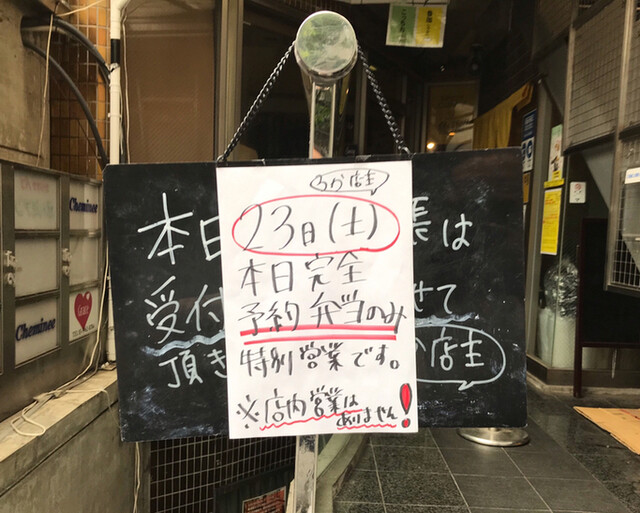 ろか店主
23日(土)
本日完全
予約弁当のみ
特別営業です。
※店内営業は
ありません!
本日
長は
受付
せて
頂き
の店主
Cheminee
Cheminee